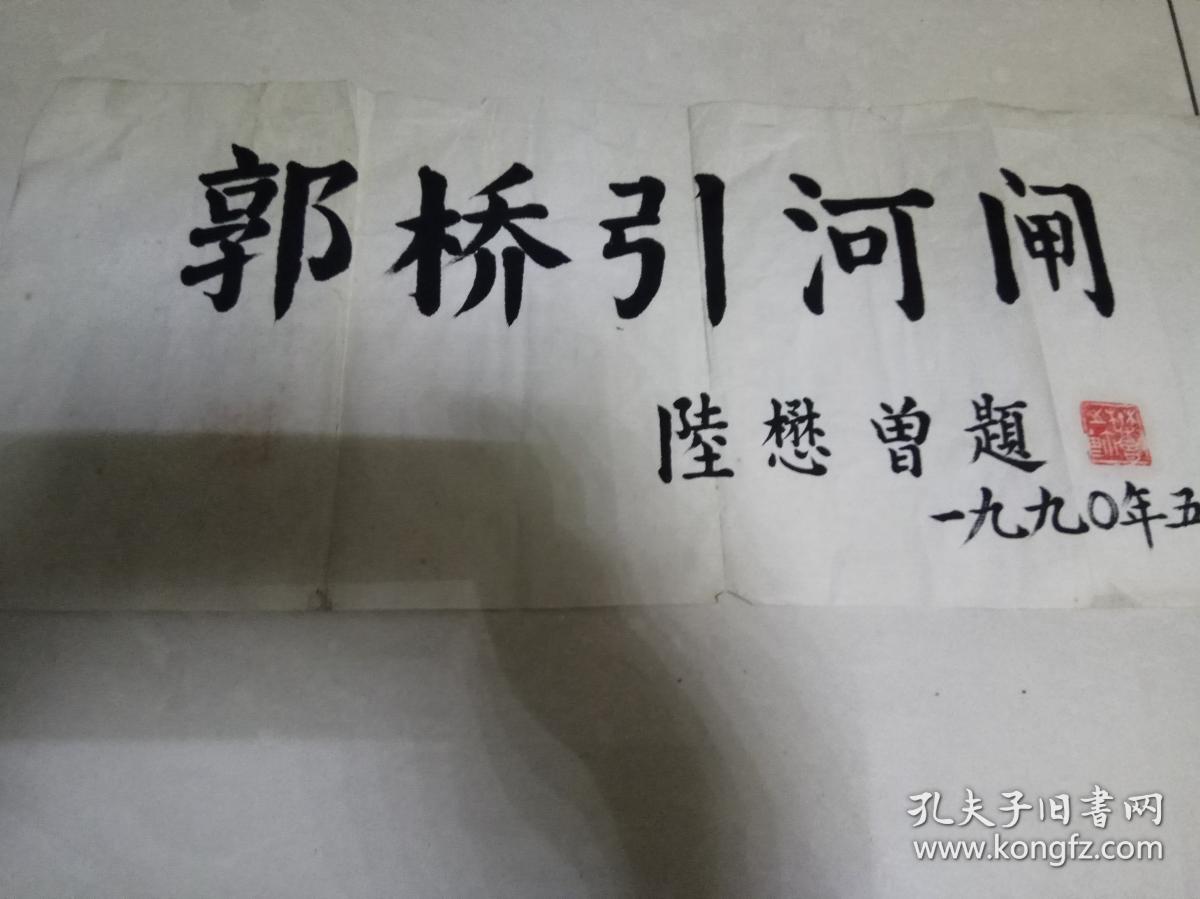 郭桥引河闸
陸懋曾題
一九九〇年五
孔夫子旧书网
www.kongfz.com